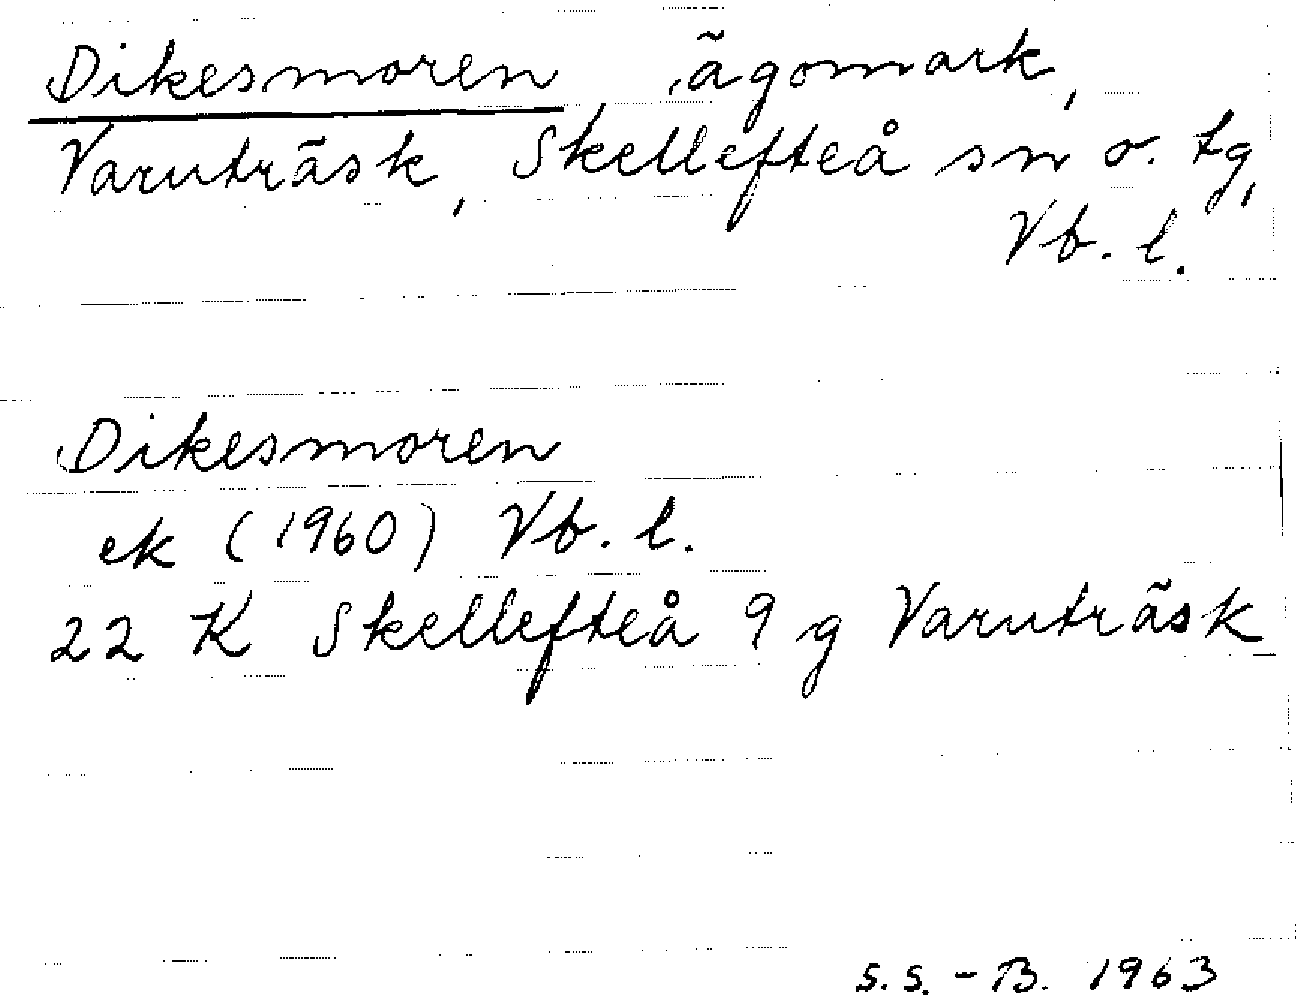 Dikesmoren ägomark,
Varuträsk, Skellefteå sn o. tg,
Vb. l.
Dikesmoren
ek (1960) Vb. l.
22 K Skellefteå 9 g Varuträsk
S.S. - B. 1963